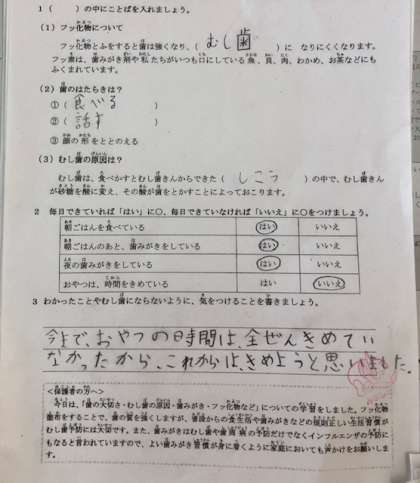 1 （　）の中にことばを入れましょう。
(1) フッ化物について
フッ化物とふをすると歯は強くなり、（ むし歯 ）に なりにくくなります。
フッ素は、歯みがき剤や私たちがいつも口にしている魚、貝、肉、わかめ、お茶などにも
ふくまれています。
(2) 歯のはたらきは？
①（ 食べる ）
②（ 話す ）
③ 顔の形をととのえる
(3) むし歯の原因は？
むし歯は、食べかすとむし歯きんからできた（ しこう ）の中で、むし歯きん
が砂糖を酸に変え、その酸が歯をとかすことによっておこります。
2 毎日できていれば「はい」に○、毎日できていなければ「いいえ」に○をつけましょう。
朝ごはんを食べている はい いいえ
朝ごはんのあと、歯みがきをしている はい いいえ
夜の歯みがきをしている はい いいえ
おやつは、時間をきめている はい いいえ
3 わかったことやむし歯にならないように、気をつけることを書きましょう。
今まで、おやつの時間は、全ぜんきめてい
なかったから、これからは、きめようと思いました。
＜保護者の方へ＞
今日は、「歯の大切さ・むし歯の原因・歯みがき・フッ化物など」についての学習をしました。フッ化物
塗布をすることで、歯の質を強くしますが、普段からの食生活や歯みがきなどの規則正しい生活習慣が
むし歯予防には大切です。また、歯みがきはむし歯や歯周病の予防だけでなくインフルエンザの予防に
もなると言われていますので、よい歯みがき習慣が身に着くように家庭においても声かけをお願いしま
す。